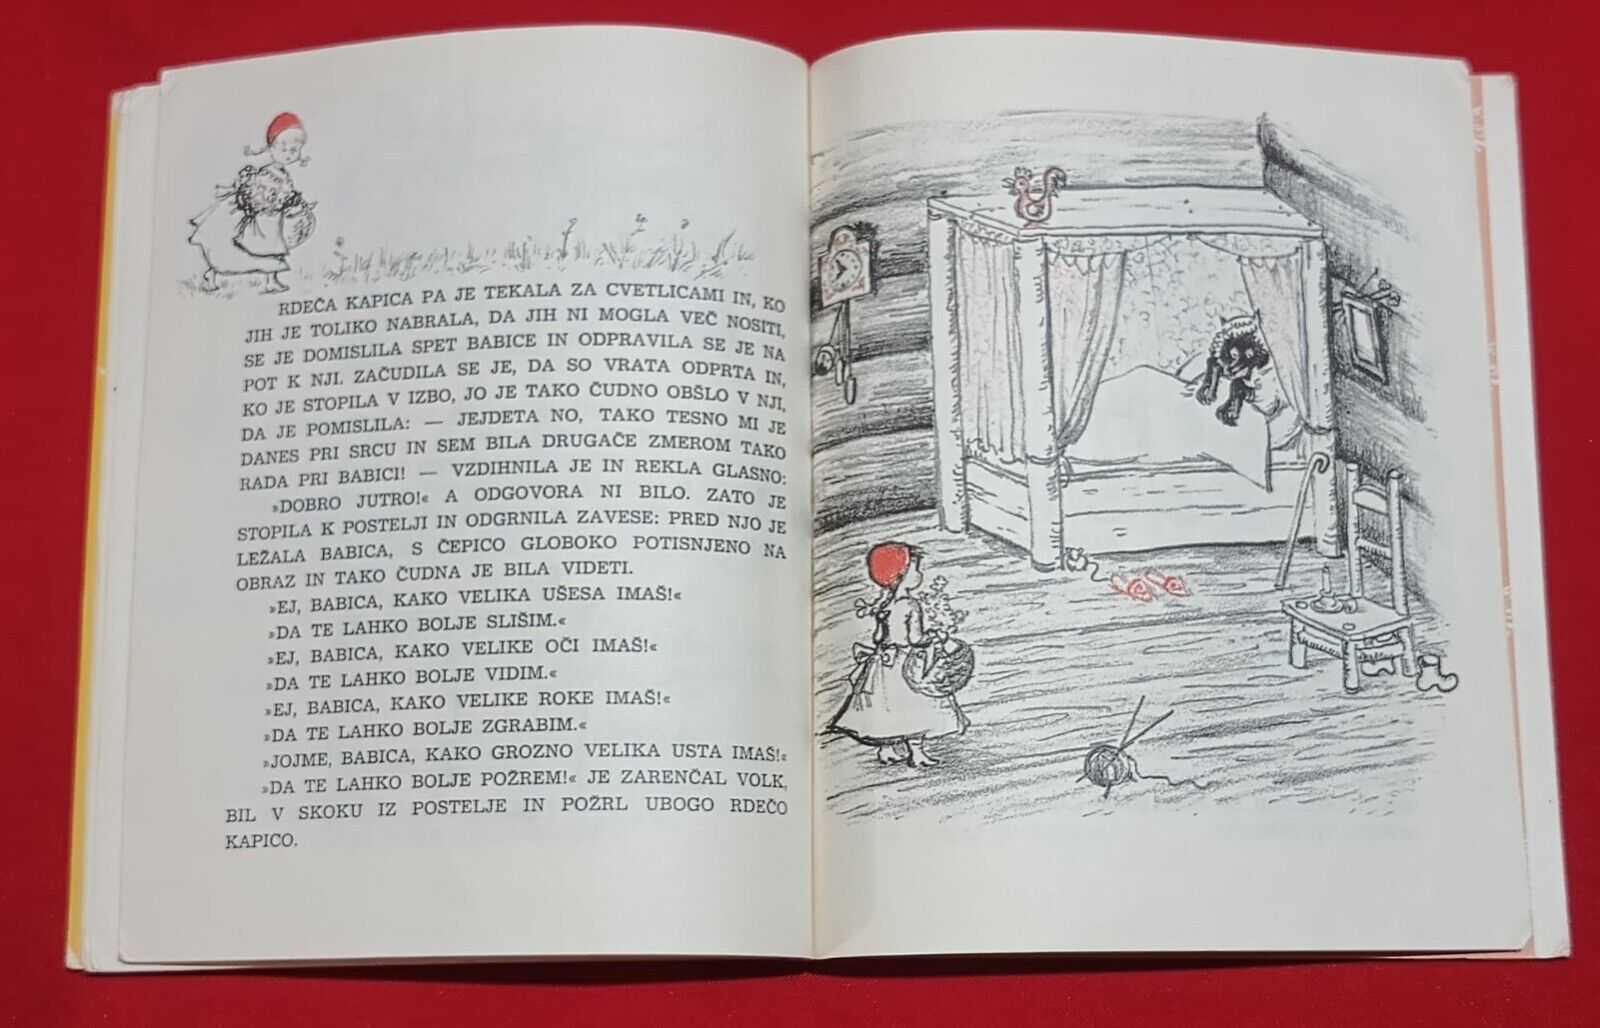 RDEČA KAPICA PA JE TEKALA ZA CVETLICAMI IN, KO
JIH JE TOLIKO NABRALA, DA JIH NI MOGLA VEČ NOSITI,
SE JE DOMISLILA SPET BABICE IN ODPRAVILA SE JE NA
POT K NJI. ZAČUDILA SE JE, DA SO VRATA ODPRTA IN,
KO JE STOPILA V IZBO, JO JE TAKO ČUDNO OBŠLO V NJI,
DA JE POMISLILA: — JEJDETA NO, TAKO TESNO MI JE
DANES PRI SRCU IN SEM BILA DRUGAČE ZMEROM TAKO
RADA PRI BABICI! — VZDIHNILA JE IN REKLA GLASNO:
»DOBRO JUTRO!« A ODGOVORA NI BILO. ZATO JE
STOPILA K POSTELJI IN ODGRNILA ZAVESE: PRED NJO JE
LEŽALA BABICA, S ČEPICO GLOBOKO POTISNJENO NA
OBRAZ IN TAKO ČUDNA JE BILA VIDETI.
»EJ, BABICA, KAKO VELIKA UŠESA IMAŠ!«
»DA TE LAHKO BOLJE SLIŠIM.«
»EJ, BABICA, KAKO VELIKE OČI IMAŠ!«
»DA TE LAHKO BOLJE VIDIM.«
»EJ, BABICA, KAKO VELIKE ROKE IMAŠ!«
»DA TE LAHKO BOLJE ZGRABIM.«
»JOJME, BABICA, KAKO GROZNO VELIKA USTA IMAŠ!«
»DA TE LAHKO BOLJE POŽREM!« JE ZARENČAL VOLK,
BIL V SKOKU IZ POSTELJE IN POŽRL UBOGO RDEČO
KAPICO.